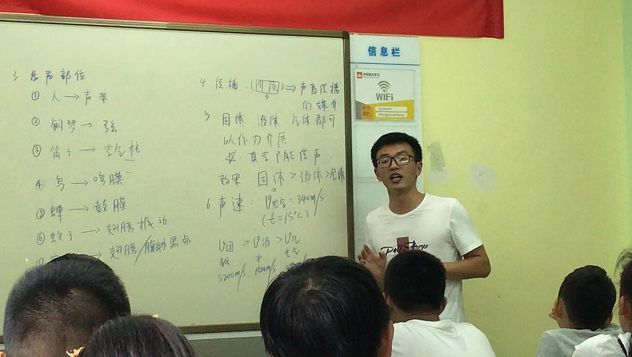 3 发声部位
① 人→声带
② 钢琴→弦
③ 笛子→空气柱
④ 鸟→鸣膜
⑤ 蝉→鼓膜
⑥ 蚊子→翅膀振动
→翅膀/
4 传播:(介质)→声音传播
的媒介
5 固体 液体 气体都可
以作为介质
真空不能传声
效果 固体>液体>气体
6 声速: V空气=340m/s
(t=15℃)
V固>V液>V气
5200m/s
信息栏
WiFi